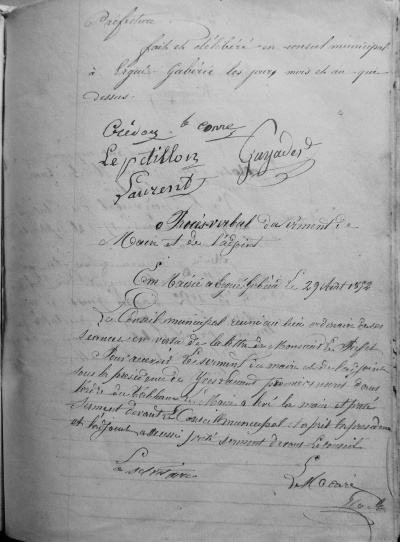 Préfecture
fait et délibéré en conseil municipal
à Ergué-Gabéric les jour mois et an que
dessus.
Crédou le Corre
Le petillon Gayader
Laurent
Procès-verbal du serment de
Maire et de l'adjoint
En Mairie à Ergué Gabéric le 29 Août 1852
Le Conseil municipal réuni au lieu ordinaire de ses
séances en vertu de la lettre de Monsieur le Préfet
Pour recevoir le serment du maire et de l'adjoint
sous la présidence de premier nommé dans
l'ordre du tableau le Maire a levé la main et prêté
Serment devant le Conseil municipal et a pris la présidence
et l'adjoint a aussi prêté serment devant le conseil
Le secrétaire Le Maire